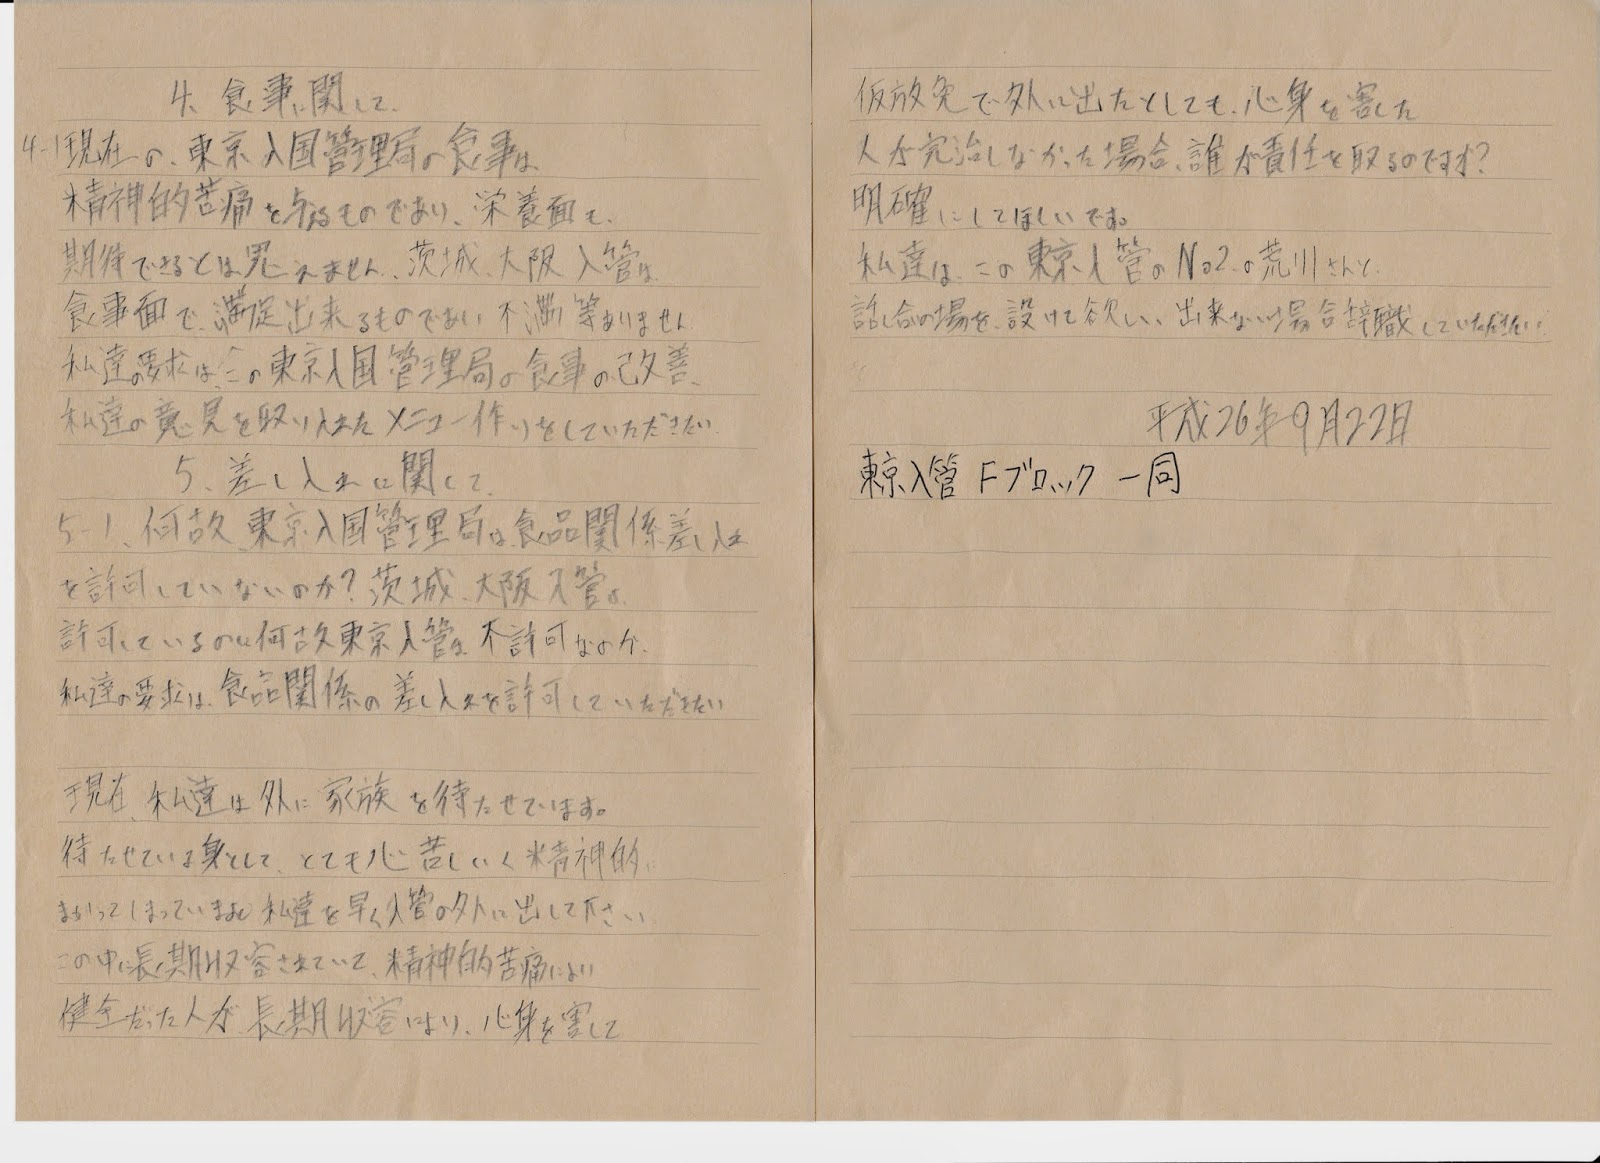 4、食事に関して、
4-1現在の、東京入国管理局の食事は、
精神的苦痛を与えるものであり、栄養面も、
期待できるとは思えません、茨城、大阪入管は、
食事面で、満足出来るものであい不満等ありません
私達の要求は、この東京入国管理局の食事の改善、
私達の意見を取り入れたメニュー作りをしていただきたい
5、差し入れに関して、
5-1、何故、東京入国管理局は、食品関係差し入れ
を許可していないのか?茨城、大阪入管は、
許可しているのに何故東京入管は、不許可なのか、
私達の要求は、食品関係の差し入れを許可していただきたい
現在、私達は外に家族を待たせています。
待たせている身として、とても心苦しいく精神的に
まいってしまっています。私達を早く入管の外に出して下さい
この中に長期収容されていて、精神的苦痛により
健全だった人が、長期収容により、心身を害して
仮放免で外に出たとしても、心身を害した
人が完治しなかった場合、誰が責任を取るのですか?
明確にしてほしいです。
私達は、この東京入管のNo2の荒川さんと、
話し合の場を、設けて欲しい、出来ない場合辞職していただきたい
平成26年9月22日
東京入管Fブロック一同